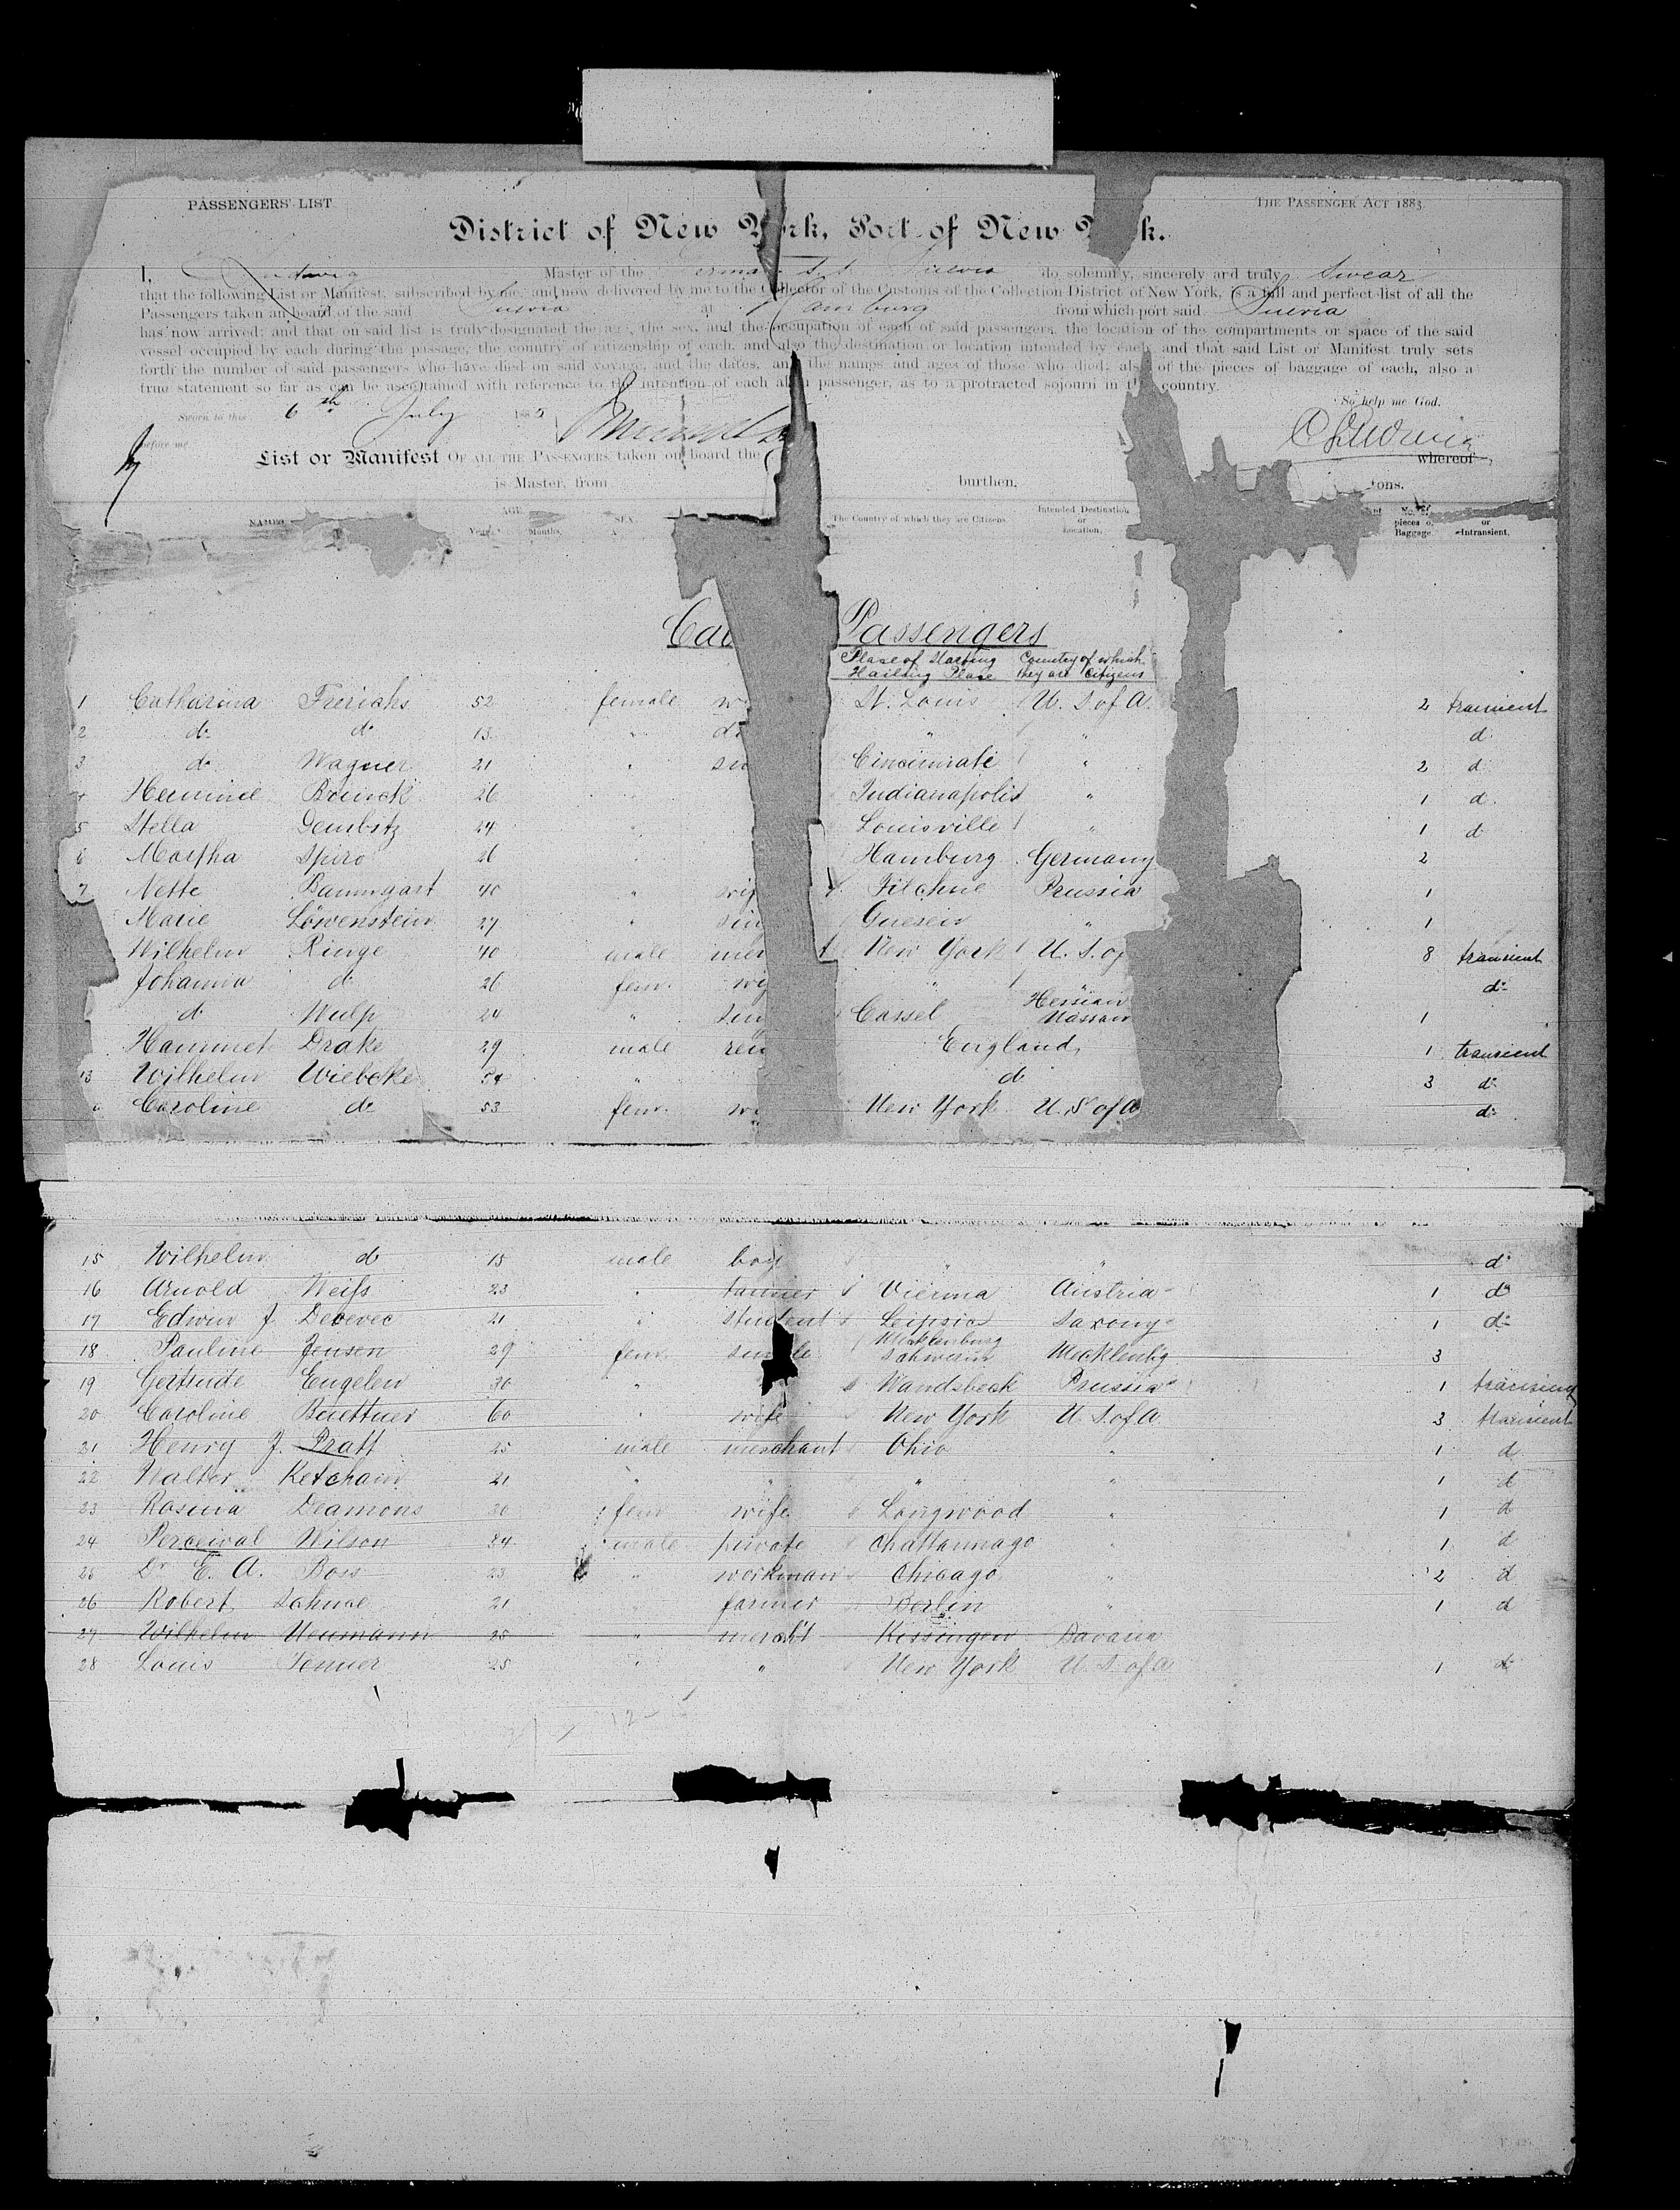 PASSENGERS' LIST
THE PASSENGER ACT 1883.
District of New York, Port of New York.
I, Ludwig Master of the German S. S. Suevia do solemnly, sincerely and truly Swear
that the following List or Manifest, subscribed by me, and now delivered by me to the Collector of the Customs of the Collection District of New York, is a full and perfect list of all the
Passengers taken on board of the said Suevia at Hamburg from which port said Suevia
has now arrived; and that on said list is truly designated the age, the sex, and the occupation of each of said passengers, the location of the compartments or space of the said
vessel occupied by each during the passage, the country of citizenship of each, and also the destination or location intended by each, and that said List or Manifest truly sets
forth the number of said passengers who have died on said voyage, and the dates, and the names and ages of those who died; also of the pieces of baggage of each, also a
true statement so far as can be ascertained with reference to the intention of each alien passenger, as to a protracted sojourn in this country.
Sworn to this 6th July 188 So help me God.
before me C Ludwig
List or Manifest OF ALL THE PASSENGERS taken on board the whereof
is Master, from burthen, tons.
NAMES AGE Years Months. SEX. The Country of which they are Citizens. Intended Destination or Location. No. of pieces of Baggage or Intransient.
Cab Passengers
Place of Starting Country of which
Hailing Place they are Citizens
1 Catharina Frerichs 52 female St. Louis U. S of A. 2 transient
2 do do 15 " " " d
3 do Wagner 21 " sin Cincinnati " 2 d
4 Hermine Brinck 26 Indianapolis " 1 d
5 Stella Dembitz 24 Louisville " 1 d
6 Martha Spiro 26 Hamburg Germany 2
7 Nette Baumgart 40 " wif Filehne Prussia 1
Marie Löwenstein 27 " sin Gnesen " 1
Wilhelm Ringe 40 male mer t New York U. S. of 8 transient
Johanna d 26 fem. wi " " do
d Wulp 24 " sin Cassel Hessian Nassau 1
Hammet Drake 29 male ren England 1 transient
13 Wilhelm Wiebcke 54 " d 3 do
Caroline do 53 fem. w New York U. S of A do
15 Wilhelm do 15 male boy " " do
16 Arnold Weiss 23 " farmer Vienna Austria 1 do
17 Edwin J Deverec 21 " student Leipsic Saxony 1 do
18 Pauline Jensen 29 fem single Mecklenburg Schwerin Mecklenbg 3
19 Gertrude Engelen 30 " Wandsbeck Prussia 1 transient
20 Caroline Buettner 60 " wife New York U. S. of A 3 transient
21 Henry J. Pratt 25 male merchant Ohio " 1 d
22 Walter Ketcham 21 " " " " 1 d
23 Rosina Deamons 30 fem wife Longwood " 1 d
24 Perceival Wilson 34 male private Chattannago " 1 d
25 Dr E. A. Bows 23 " workman Chicago " 2 d
26 Robert Sahme 21 " farmer Berlin " 1 d
27 Wilhelm Neumann 25 " merch't Kissingen Bavaria
28 Louis Tenner 25 " " New York U. S. of A 1 do